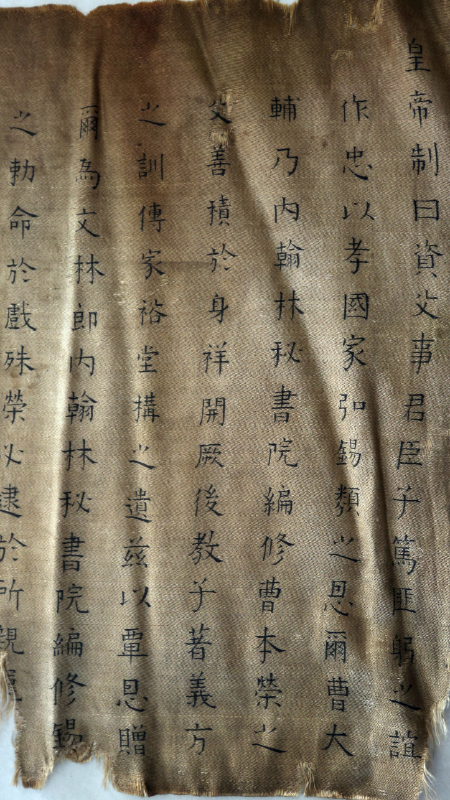 皇帝制曰資父事君臣子篤匪躬之誼
作忠以孝國家弘錫類之恩爾曹大
輔乃內翰林秘書院編修曹本榮之
父善積於身祥開厥後教子著義方
之訓傳家裕堂構之遺茲以覃恩贈
爾為文林郎內翰林秘書院編修錫
之勅命於戲殊榮必逮於所親